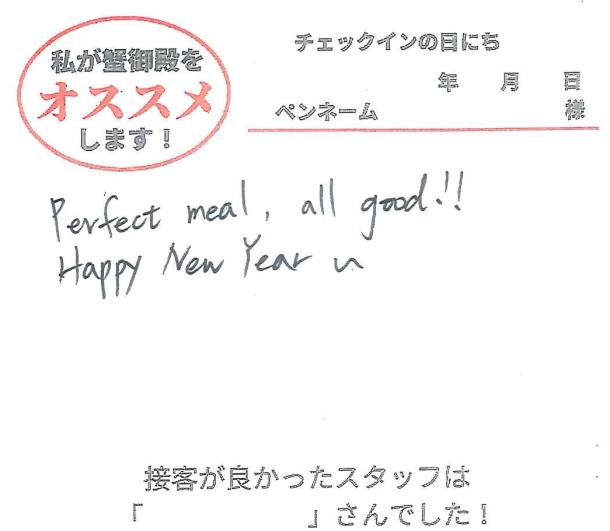 私が蟹御殿を
オススメ
します！
チェックインの日にち
年 月 日
ペンネーム 様
Perfect meal, all good!!
Happy New Year
接客が良かったスタッフは
「 」さんでした！